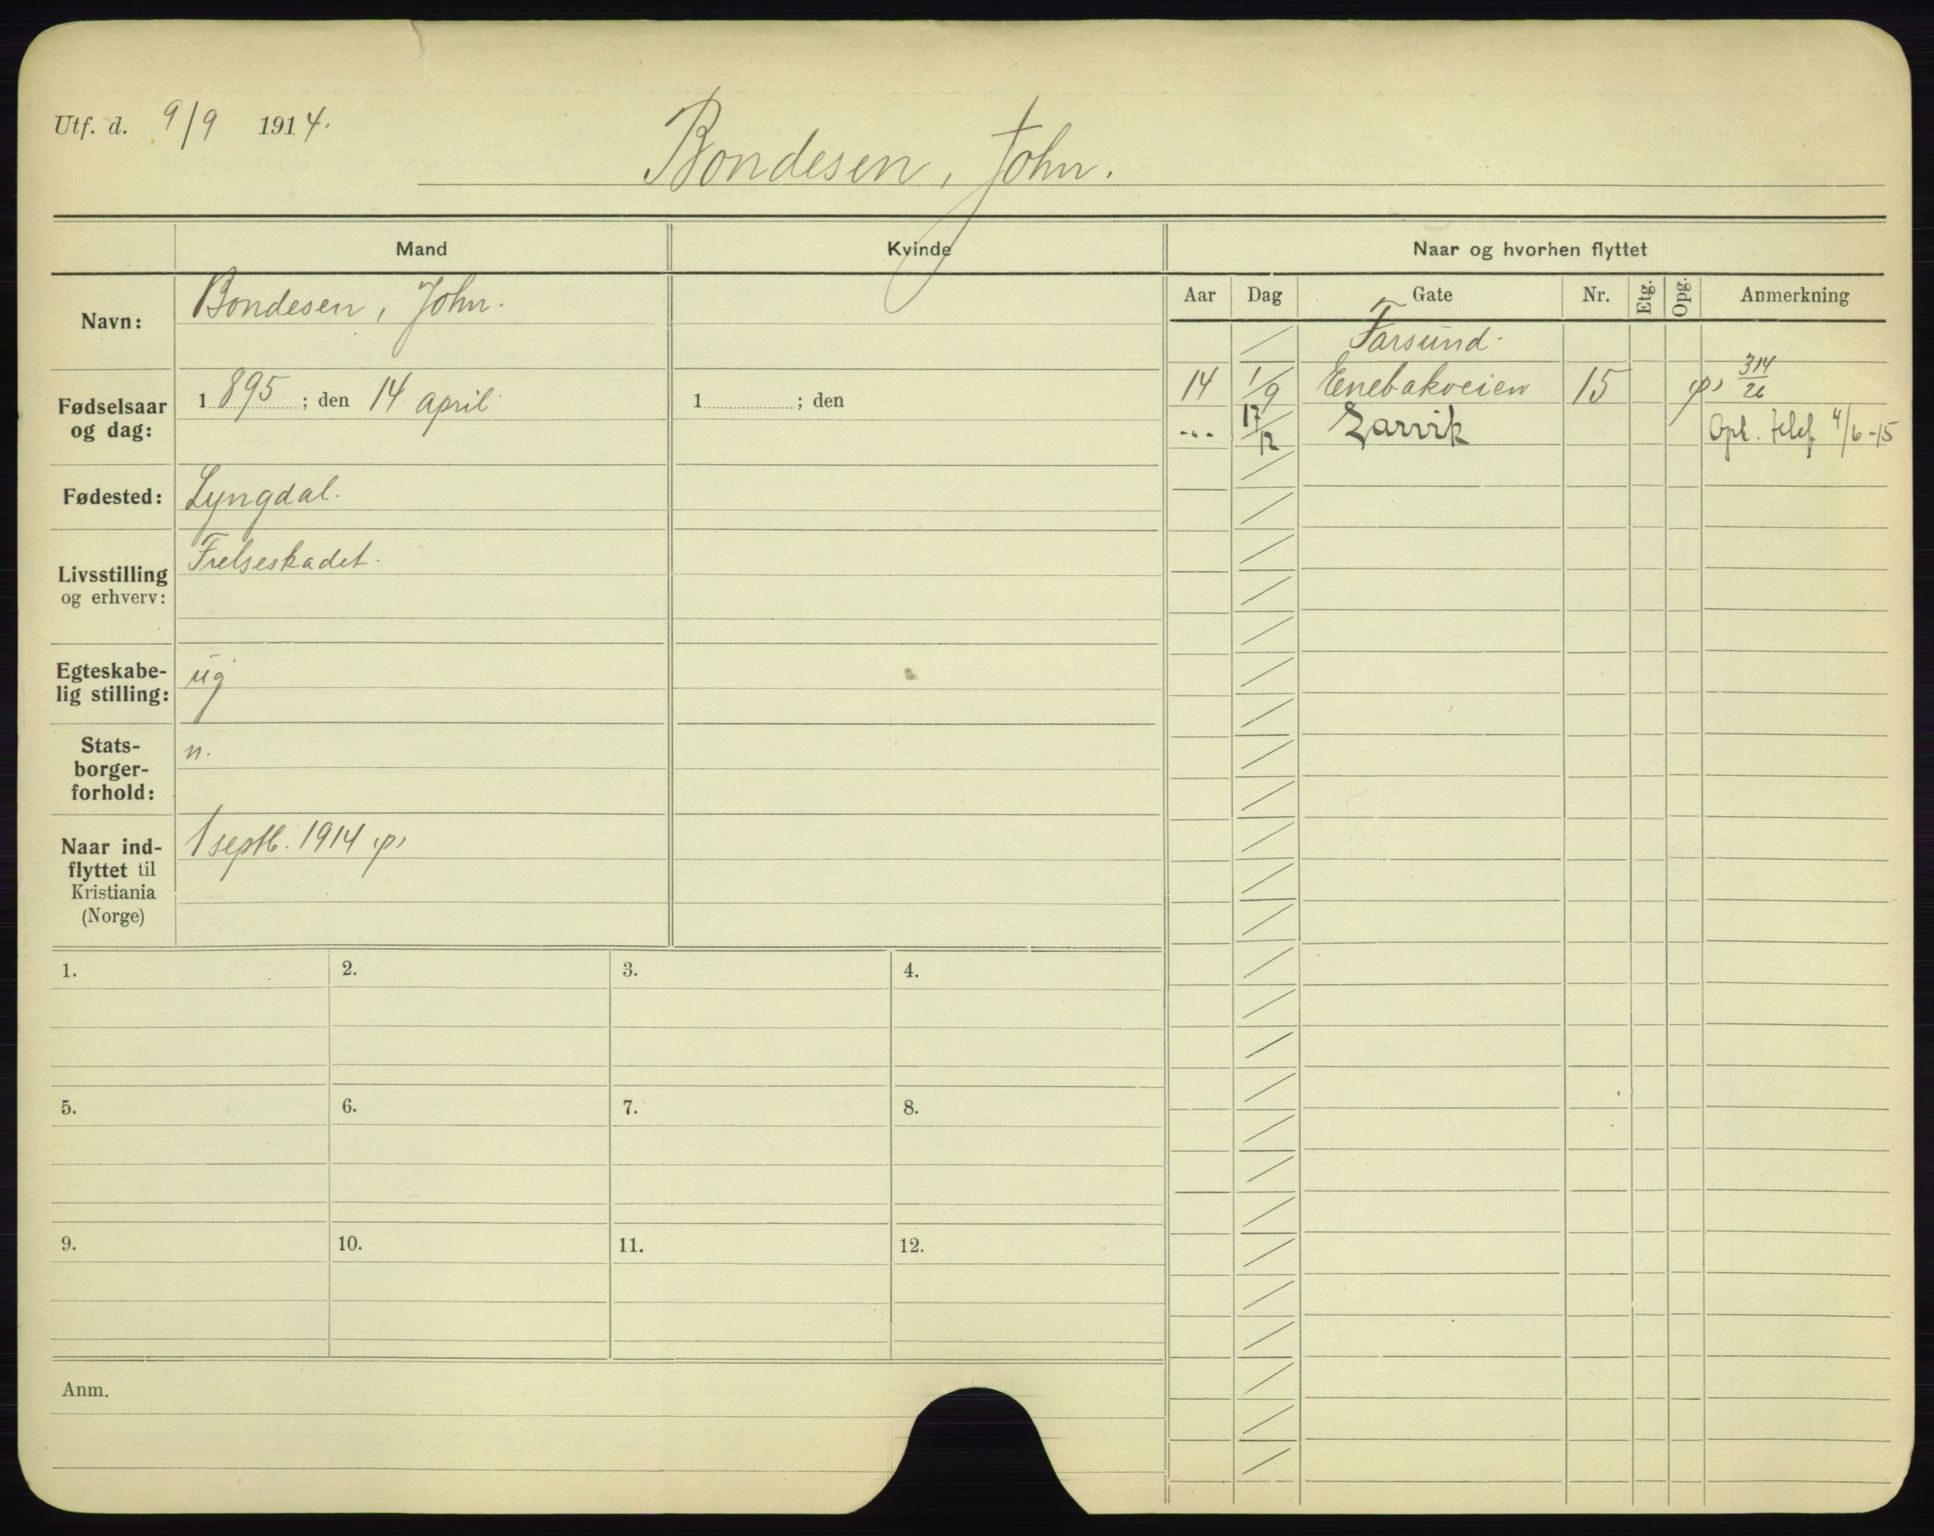 Utf. d. 9/9 1914.
Bondesen, John.
Mand Kvinde Naar og hvorhen flyttet
Navn: Bondesen, John.
Fødselsaar og dag: 1895; den 14 april 1 ; den
Fødested: Lyngdal.
Livsstilling og erhverv: Frelseskadet.
Egteskabe-
lig stilling: ug
Stats-
borger-
forhold: n.
Naar ind-
flyttet til
Kristiania
(Norge) 1 septb. 1914
Aar Dag Gate Nr. Etg. Opg. Anmerkning
Farsund.
14 1/9 Enebakveien 15 314/26
-"- 17/12 Larvik Opl. telef 4/6-15
1. 2. 3. 4.
5. 6. 7. 8.
9. 10. 11. 12.
Anm.